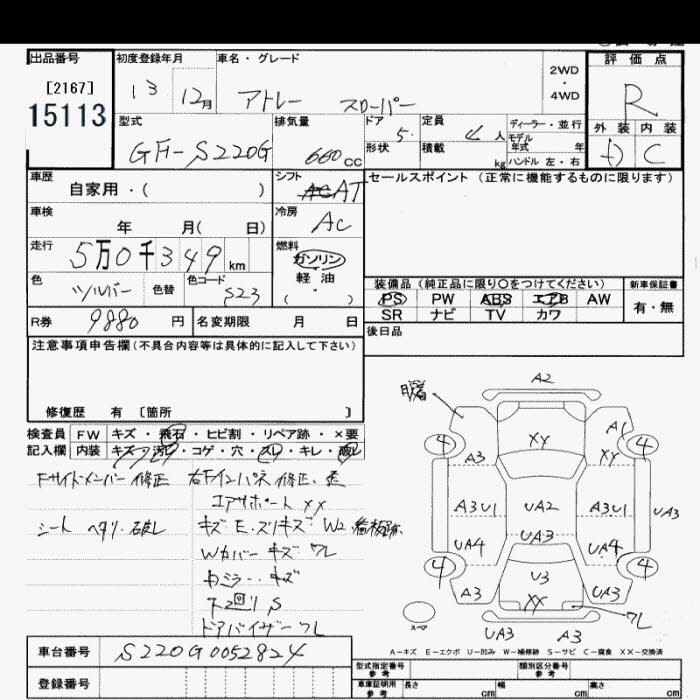 出品番号
[2167]
15113
初度登録年月
13 12月
車名・グレード
アトレー スローパー
2WD
・
4WD
評価点
R
外装 内装
C
型式
GF-S220G
排気量
660cc
ドア 5
形状
定員 4人
積載 kg
ディーラー・並行
モデル年式 年
ハンドル 左・右
車歴
自家用・( )
シフト
AT
セールスポイント (正常に機能するものに限ります)
車検
年 月( 日)
冷房
AC
走行
5万0千349km
燃料
ガソリン
軽油
・
( )
色
シルバー
色替
色コード
S23
装備品(純正品に限り○をつけてください)
新車保証書
PS PW ABS エアB AW
有・無
SR ナビ TV カワ
R券
9880円
名変期限 月 日
後日品
注意事項申告欄(不具合内容等は具体的に記入して下さい)
修復歴 有 [箇所 ]
検査員
記入欄
FW キズ・飛石・ヒビ割・リペア跡・×要
内装 キズ・汚レ・コゲ・穴・スレ・キレ・
Fサイドメンバー修正 右Fインパネ修正・歪
コアサポートXX
シート ヘタリ・
キズE・スリキズ W2
Wカバー キズ ワレ
ミラー・キズ
下回りS
ドアバイザーワレ
A2
A1
XY
XY
4
4
A3
A3U1
UA2
A3U1
UA3
UA3
UA4
UA4
4
4
U3
A3
XX
UA3
ワレ
スペア
UA3
A3
A-キズ E-エクボ U-凹み W-補修跡 S-サビ C-腐食 XX-交換済
車台番号
S220G0052824
登録番号
型式指定番号
参考
類別区分番号
参考
車庫証明用
参考
長さ cm
幅 cm
高さ cm